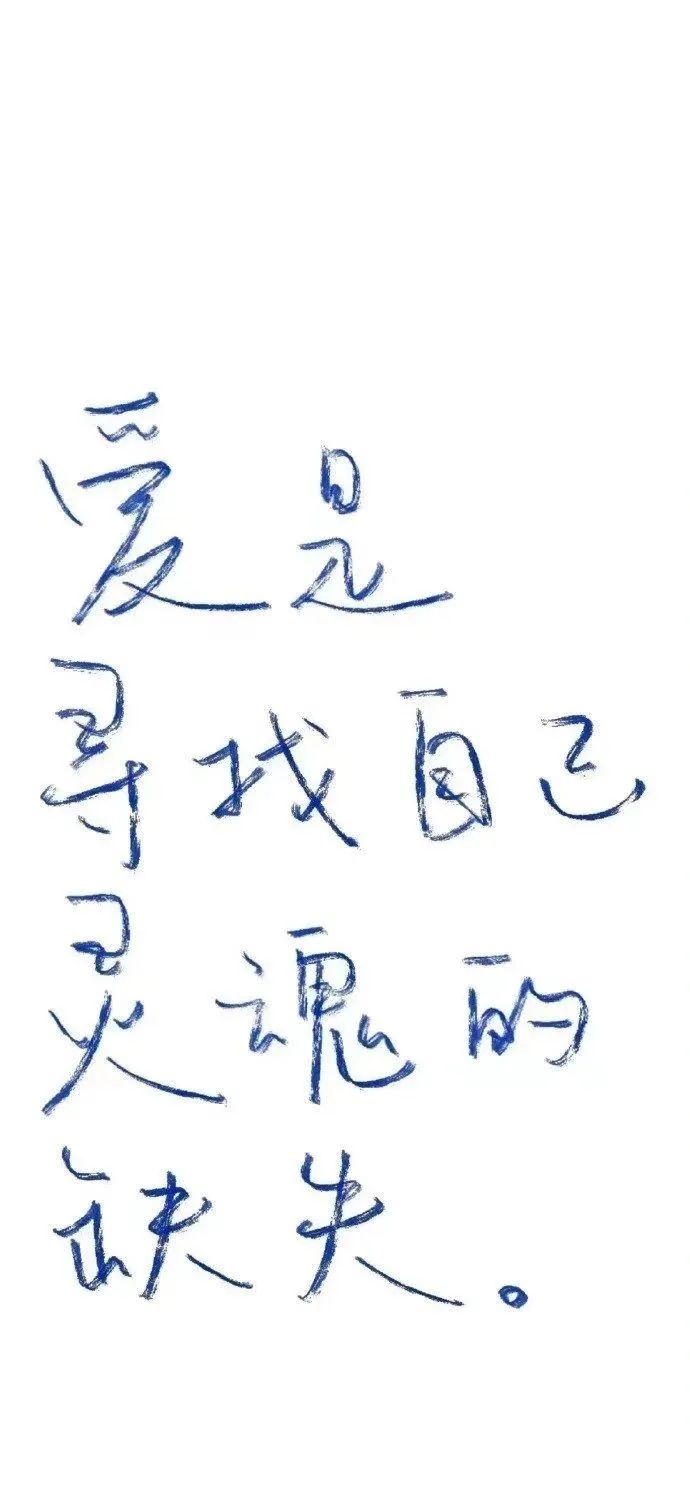 爱是
寻找自己
灵魂的
缺失。